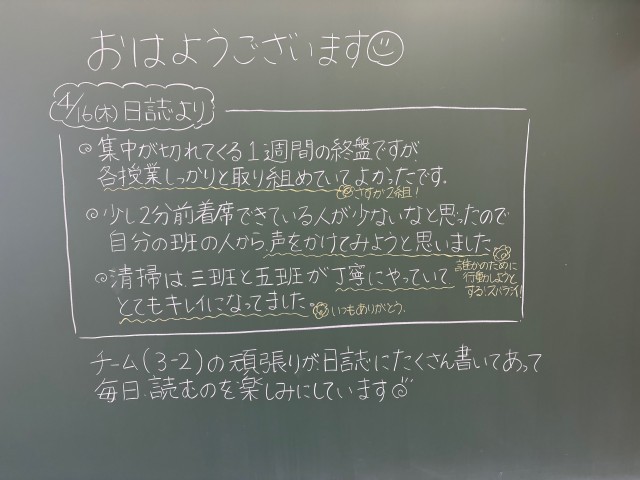 おはようございます
4/16(木)日誌より
◎集中が切れてくる1週間の終盤ですが
各授業しっかりと取り組めていてよかったです.
さすが2組!
◎少し2分前着席できている人が少ないなと思ったので
自分の班の人から声をかけてみようと思いました.
誰かのために
行動しようと
する!スバラシイ!
◎清掃は、三班と五班が丁寧にやっていて
とてもキレイになってました.
いつもありがとう.
チーム(3-2)の頑張りが、日誌にたくさん書いてあって
毎日、読むのを楽しみにしています